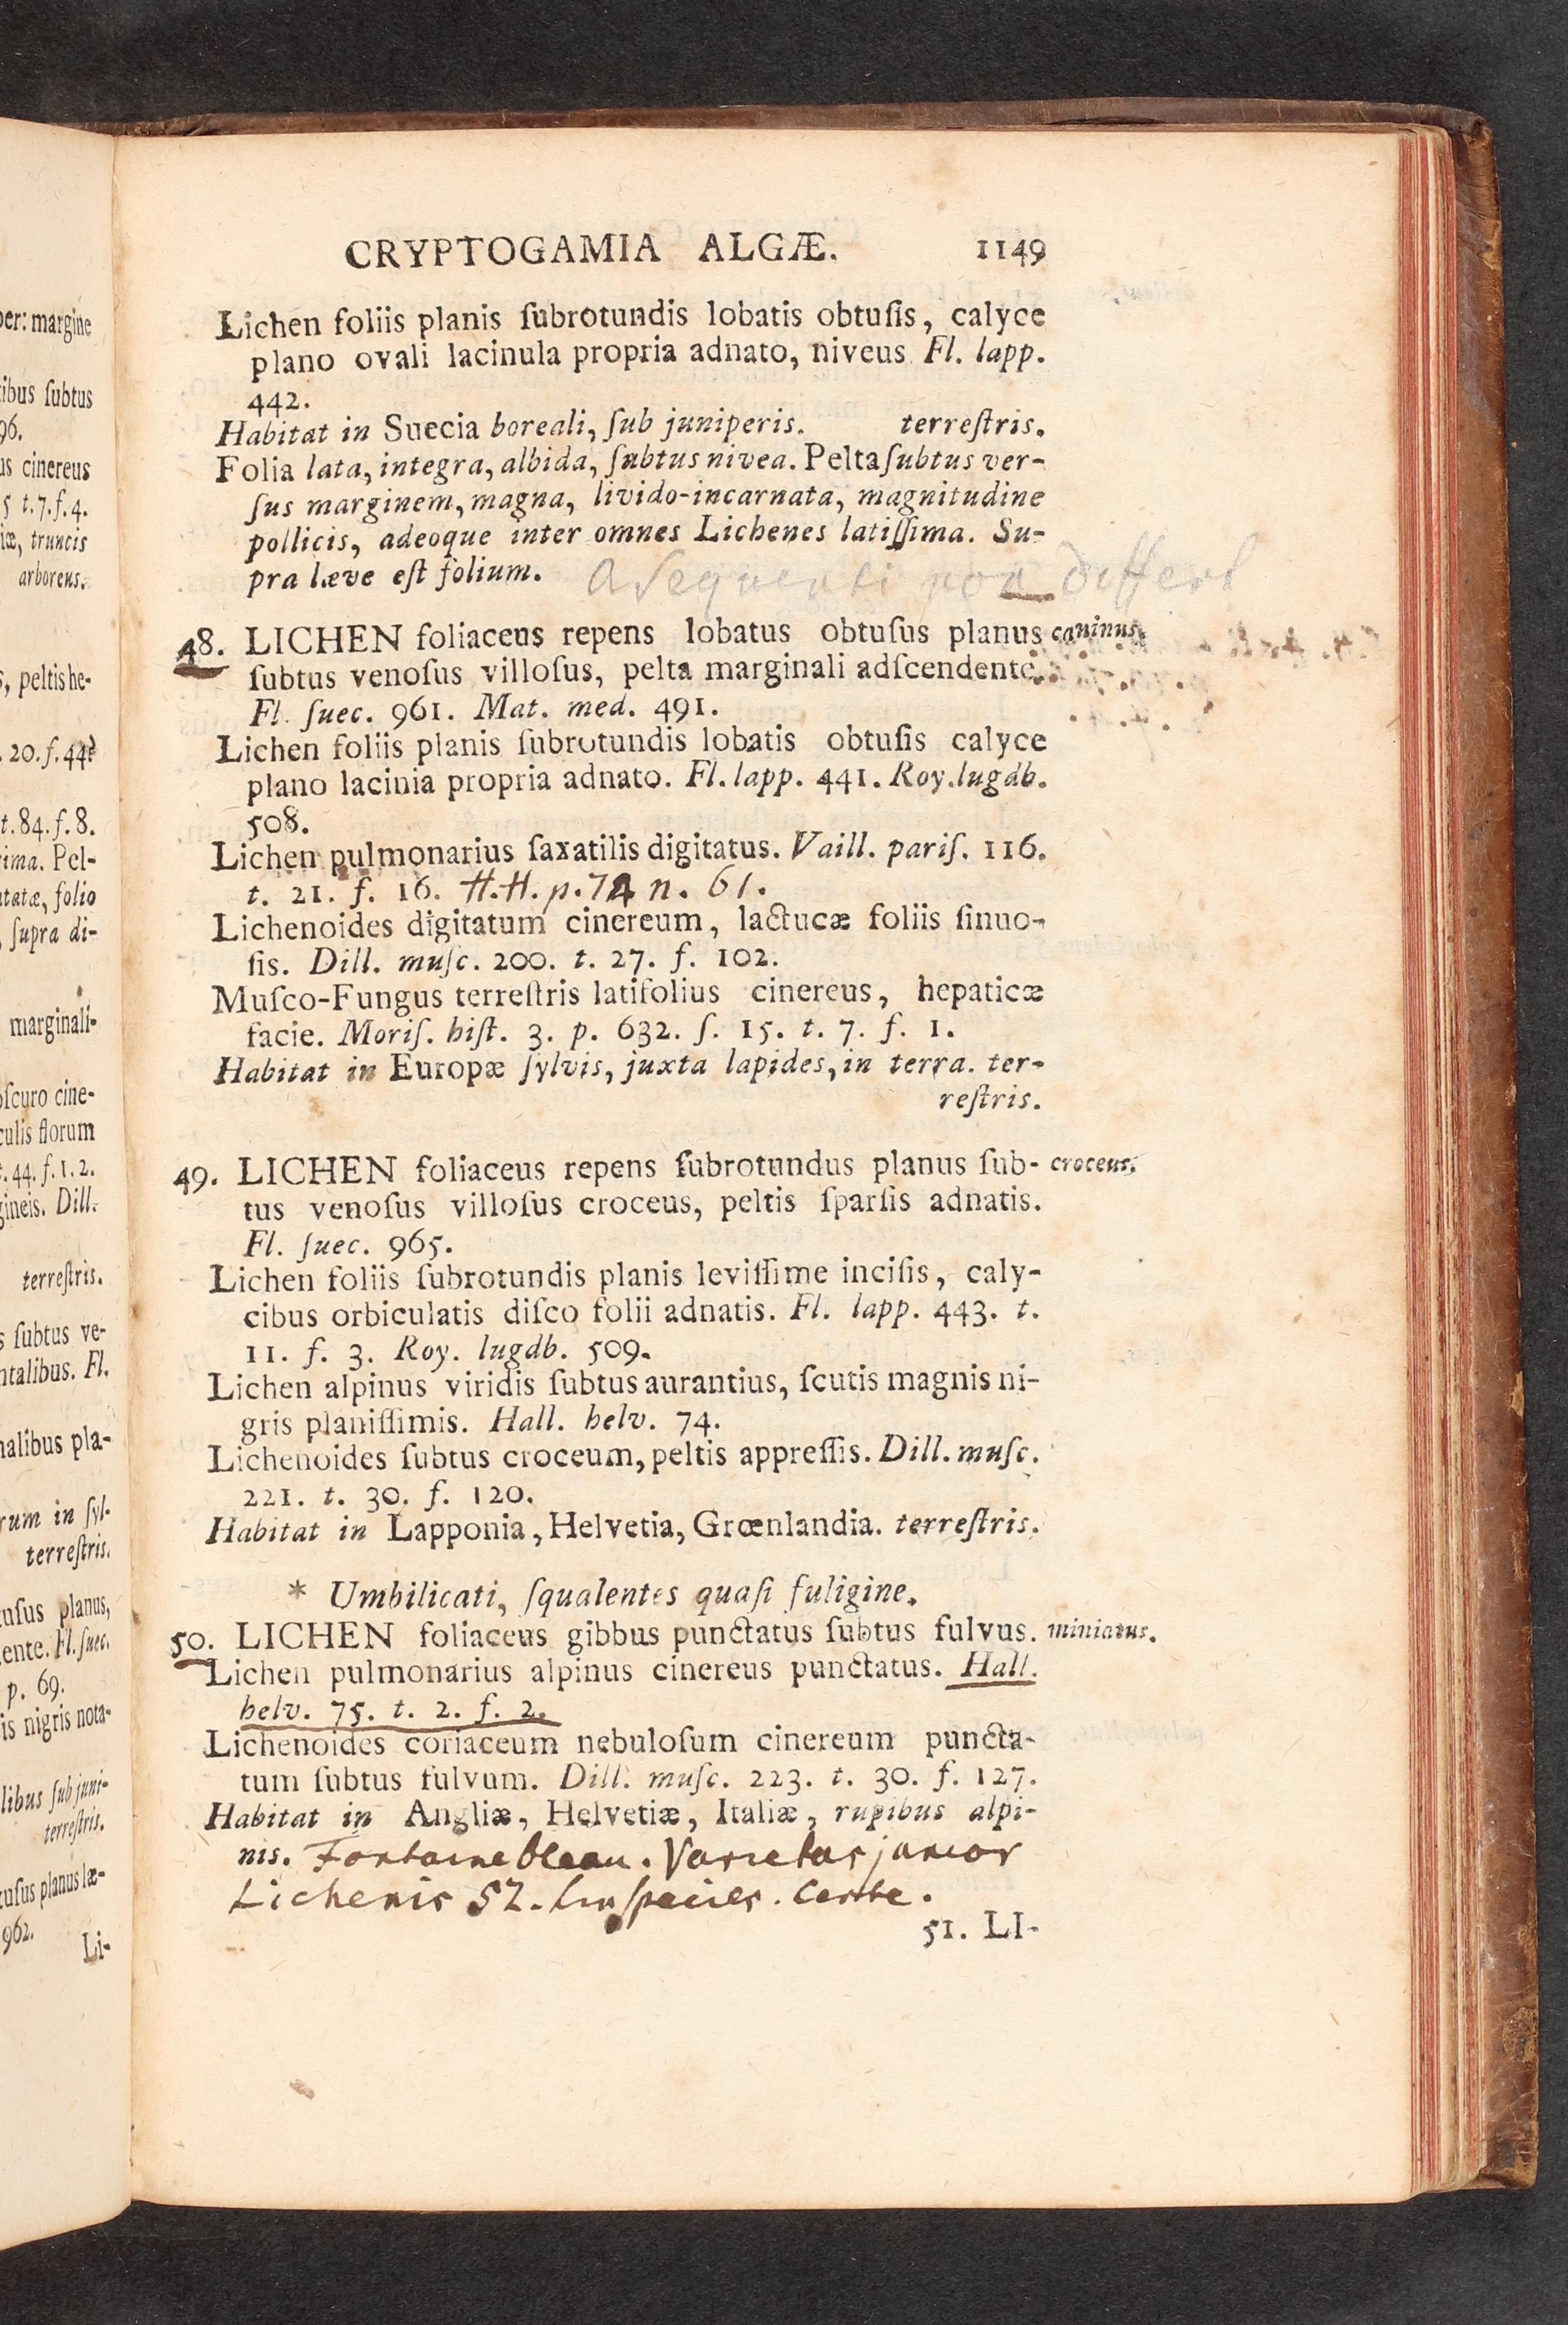 CRYPTOGAMIA ALGÆ. 1149
Lichen foliis planis ſubrotundis lobatis obtuſis, calyce
plano ovali lacinula propria adnato, niveus Fl. lapp.
442.
Habitat in Suecia boreali, ſub juniperis. terreſtris.
Folia lata, integra, albida, ſubtus nivea. Pelta ſubtus ver-
ſus marginem, magna, livido-incarnata, magnitudine
pollicis, adeoque inter omnes Lichenes latiſſima. Su-
pra læve eſt folium. a sequenti non differt
48. LICHEN foliaceus repens lobatus obtuſus planus caninus.
ſubtus venoſus villoſus, pelta marginali adſcendente.
Fl. ſuec. 961. Mat. med. 491.
Lichen foliis planis ſubrotundis lobatis obtuſis calyce
plano lacinia propria adnato. Fl. lapp. 441. Roy. lugdb.
508.
Lichen pulmonarius ſaxatilis digitatus. Vaill. pariſ. 116.
t. 21. f. 16. H.H. p. 74 n. 61.
Lichenoides digitatum cinereum, lactucæ foliis ſinuo-
ſis. Dill. muſc. 200. t. 27. f. 102.
Muſco-Fungus terreſtris latifolius cinereus, hepaticæ
facie. Moriſ. hiſt. 3. p. 632. ſ. 15. t. 7. f. 1.
Habitat in Europæ ſylvis, juxta lapides, in terra. ter-
reſtris.
49. LICHEN foliaceus repens ſubrotundus planus ſub- croceus.
tus venoſus villoſus croceus, peltis ſparſis adnatis.
Fl. ſuec. 965.
Lichen foliis ſubrotundis planis leviſſime inciſis, caly-
cibus orbiculatis diſco folii adnatis. Fl. lapp. 443. t.
11. f. 3. Roy. lugdb. 509.
Lichen alpinus viridis ſubtus aurantius, ſcutis magnis ni-
gris planiſſimis. Hall. helv. 74.
Lichenoides ſubtus croceum, peltis appreſſis. Dill. muſc.
221. t. 30. f. 120.
Habitat in Lapponia, Helvetia, Grœnlandia. terreſtris.
* Umbilicati, ſqualentes quaſi fuligine.
50. LICHEN foliaceus gibbus punctatus ſubtus fulvus. miniatus.
Lichen pulmonarius alpinus cinereus punctatus. Hall.
helv. 75. t. 2. f. 2.
Lichenoides coriaceum nebuloſum cinereum puncta-
tum ſubtus fulvum. Dill. muſc. 223. t. 30. f. 127.
Habitat in Angliæ, Helvetiæ, Italiæ, rupibus alpi-
nis. Fontainebleau. Varietas junior
Lichenis 52. species. certe.
51. LI-
per: margine
tibus ſubtus
96.
us cinereus
5 t. 7. f. 4.
iæ, truncis
arboreus.
s, peltis he-
. 20. f. 44?
t. 84. f. 8.
ima. Pel-
tatæ, folio
ſupra di-
marginali-
oſcuro cine-
culis florum
t. 44. f. 1. 2.
gineis. Dill.
terreſtris.
s ſubtus ve-
ntalibus. Fl.
nalibus pla-
rum in ſyl-
terreſtris.
tuſus planus,
ente. Fl. ſuec.
p. 69.
is nigris nota-
libus ſub juni-
terreſtris.
tuſus planus læ-
962.
Li-